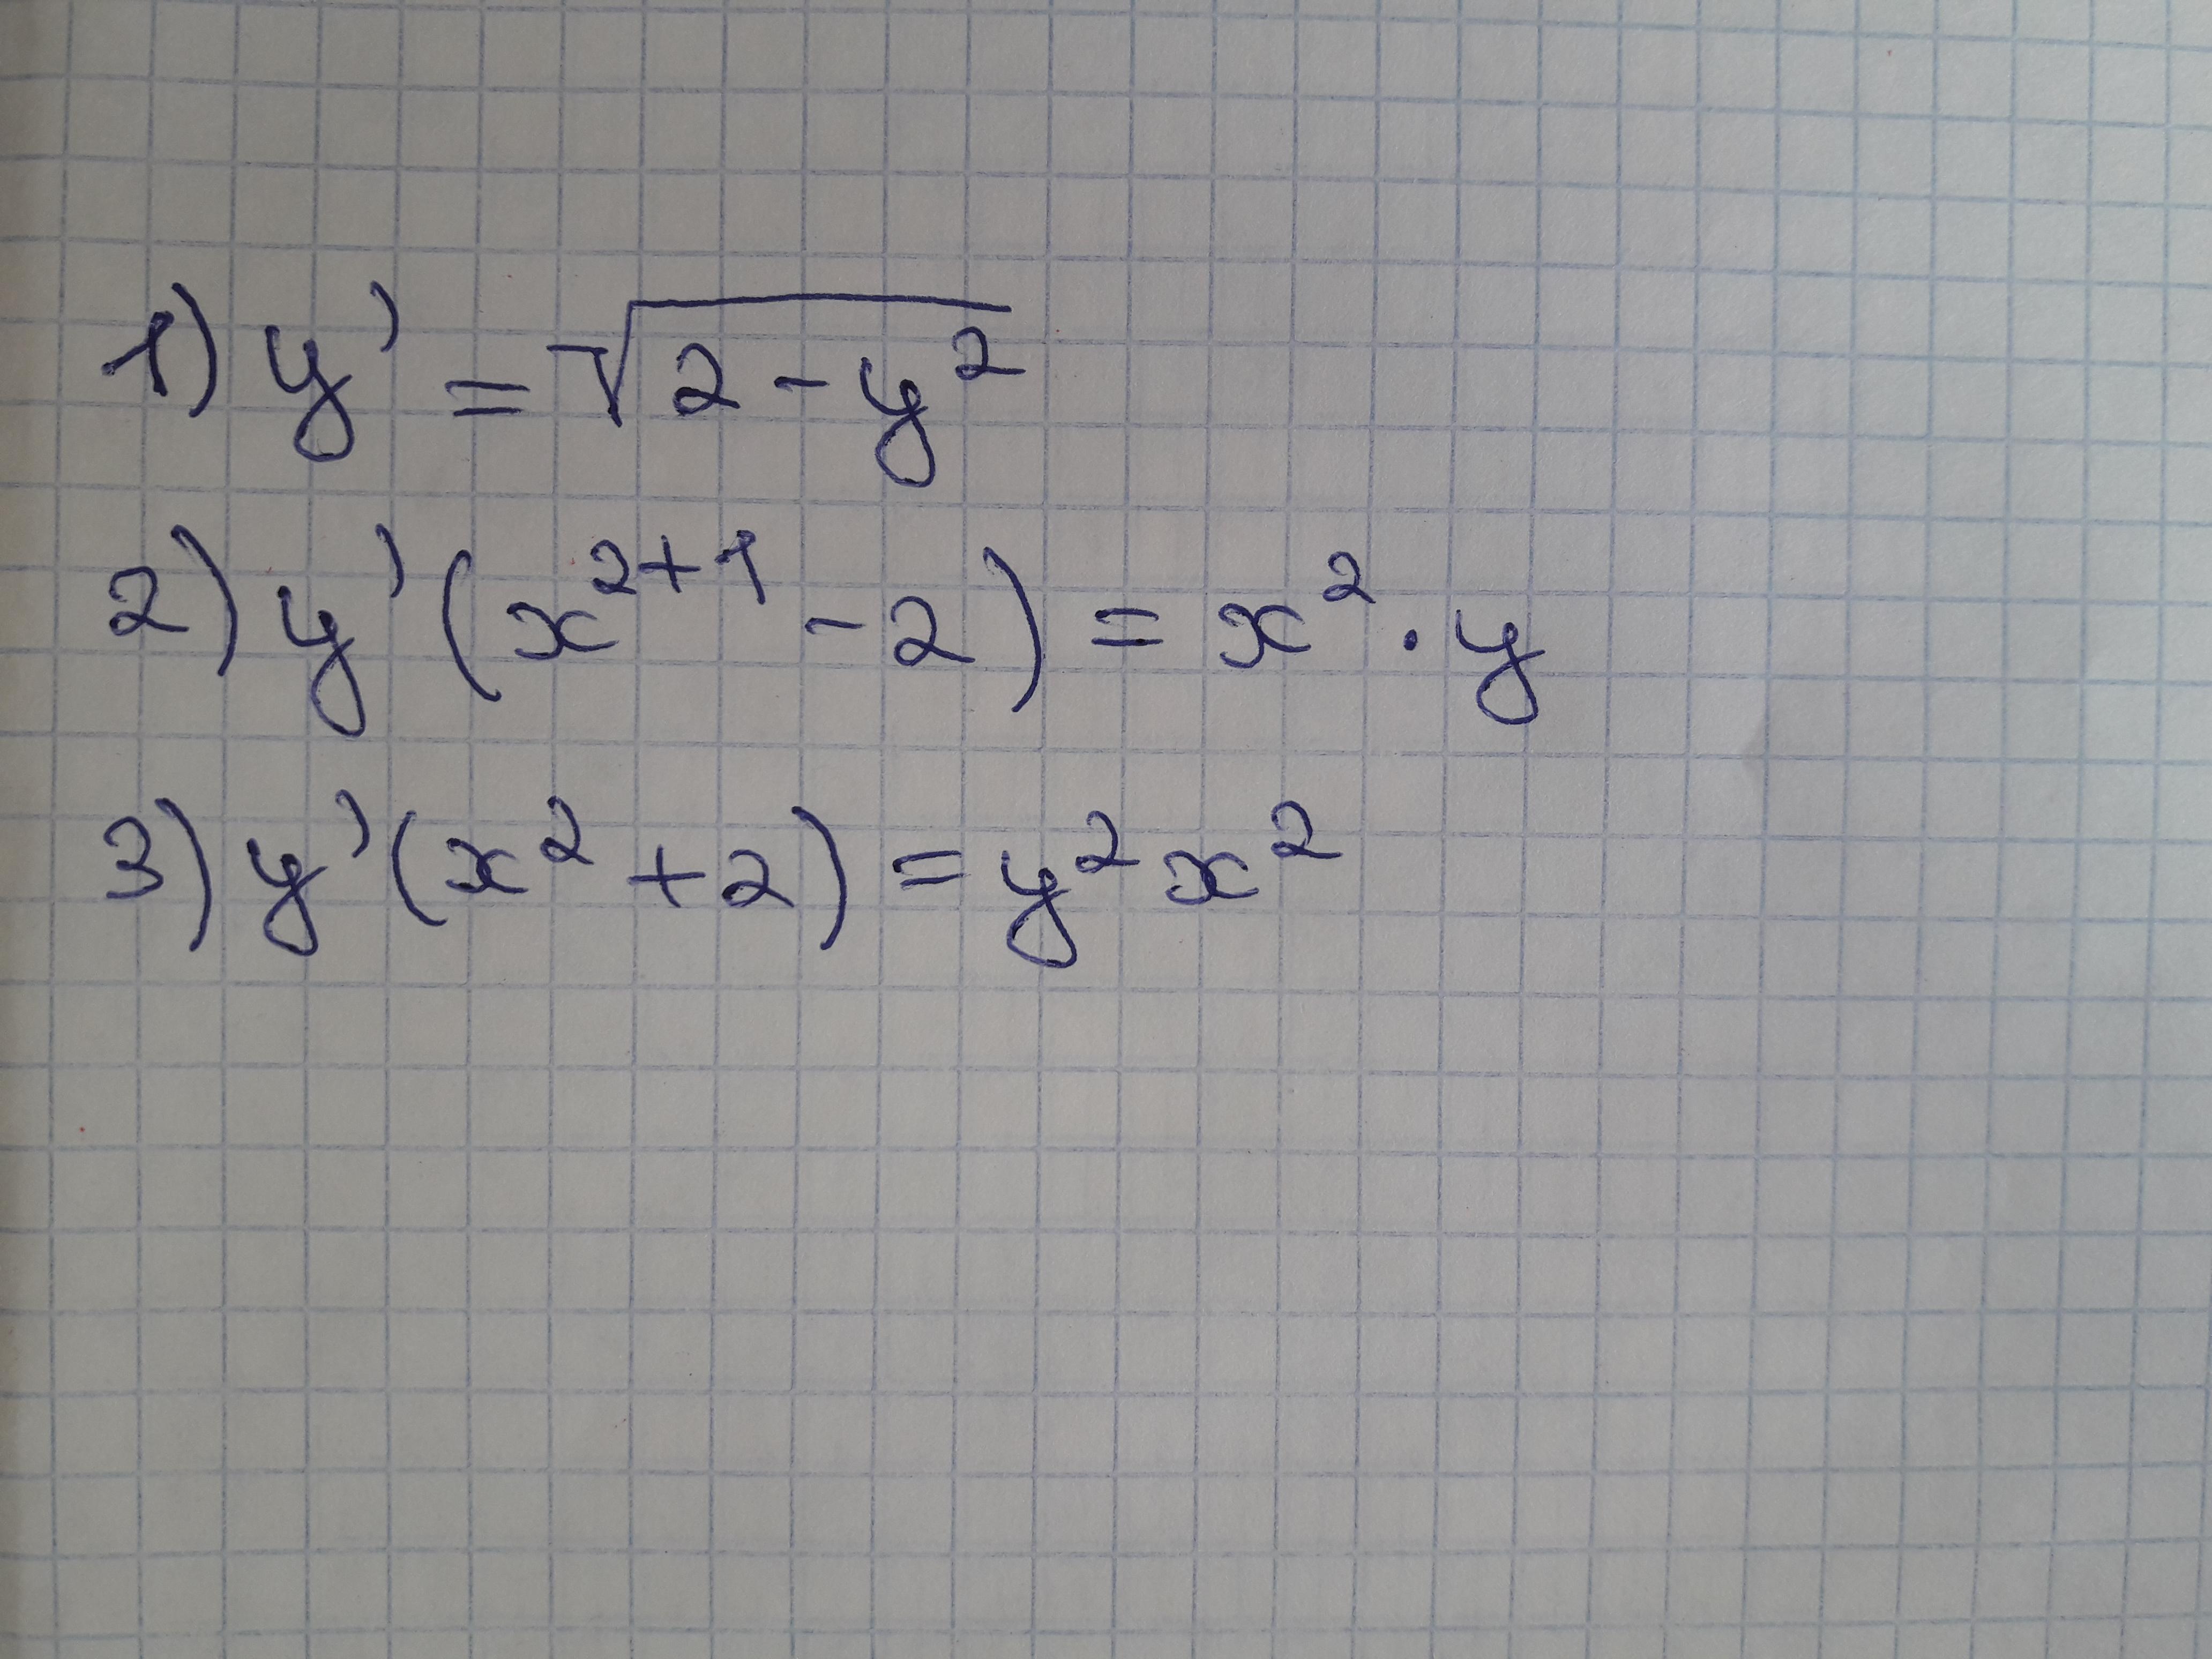 1) y' = √(2 - y²)
2) y'(x²⁺¹ - 2) = x² · y
3) y'(x² + 2) = y² x²